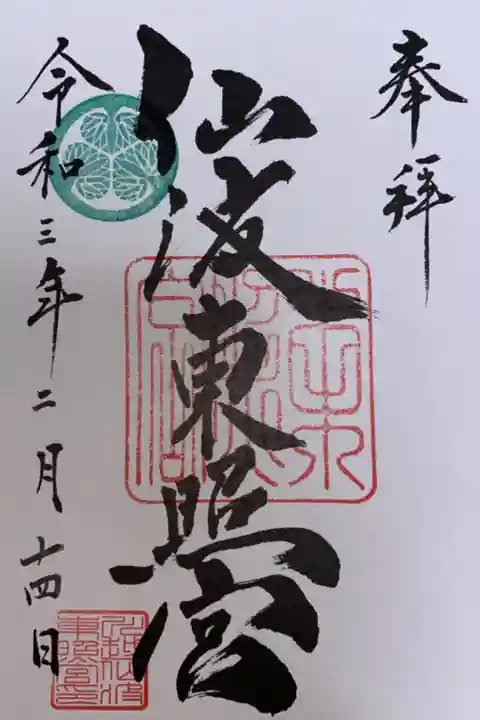 奉拝
仙波東照宮
令和三年二月十四日